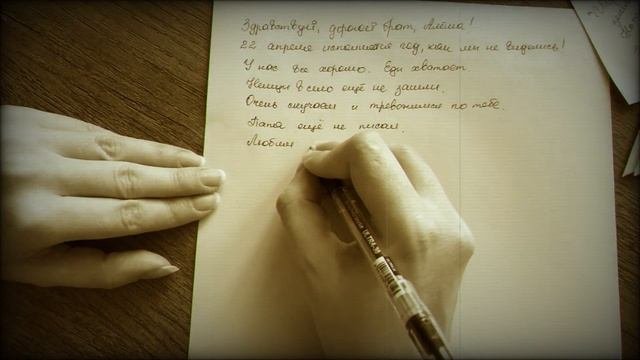 Здравствуй, дорогой брат, Алёша!
22 апреля исполнится год, как мы не виделись!
У нас все хорошо. Еды хватает.
Немцы в село ещё не зашли.
Очень скучаем и тревожимся по тебе.
Папа ещё не писал.
Любим